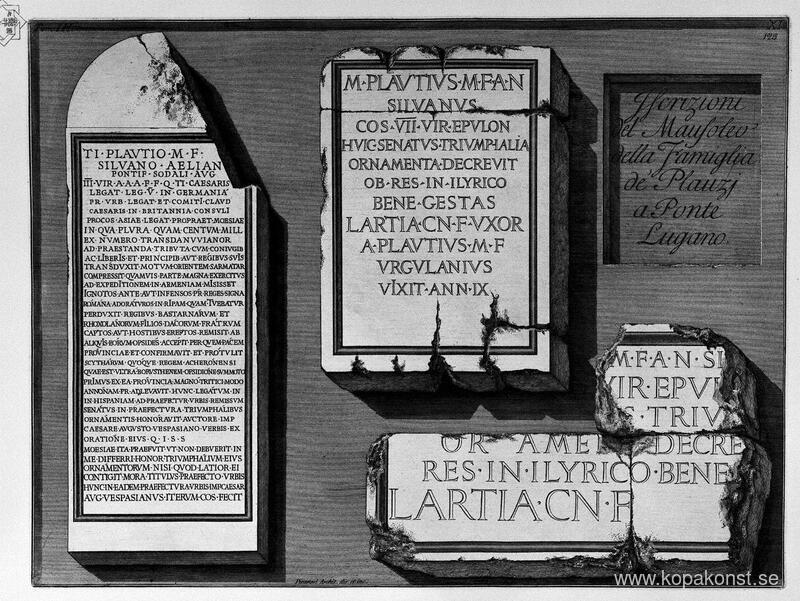 XII
123
TI · PLAVTIO · M · F ·
SILVANO · AELIAN
PONTIF · SODALI · AVG
III · VIR · A · A · A · F · F · Q · TI · CAESARIS
LEGAT · LEG · V · IN · GERMANIA
PR · VRB · LEGAT · ET · COMITI · CLAVD
CAESARIS · IN · BRITANNIA · CONSVLI
PROCOS · ASIAE · LEGAT · PROPRAET · MOESIAE
IN · QVA · PLVRA · QVAM · CENTVM · MILL
EX · NVMERO · TRANSDANVVIANOR
AD · PRAESTANDA · TRIBVTA · CVM · CONIVGIB
AC · LIBERIS · ET · PRINCIPIB · AVT · REGIBVS · SVIS
TRANSDVXIT · MOTVM · ORIENTEM · SARMATAR
COMPRESSIT · QVAMVIS · PARTE · MAGNA · EXERCITVS
AD · EXPEDITIONEM · IN · ARMENIAM · MISISSET
IGNOTOS · ANTE · AVT · INFENSOS · P · R · REGES · SIGNA
ROMANA · ADORATVROS · IN · RIPAM · QVAM · TVEBATVR
PERDVXIT · REGIBVS · BASTARNARVM · ET
RHOXOLANORVM · FILIOS · DACORVM · FRATRVM
CAPTOS · AVT · HOSTIBVS · EREPTOS · REMISIT · AB
ALIQVIS · EORVM · OPSIDES · ACCEPIT · PER · QVEM · PACEM
PROVINCIAE · ET · CONFIRMAVIT · ET · PROTVLIT
SCYTHARVM · QVOQVE · REGEM · A · CHERONENSI
QVAE · EST · VLTRA · BORVSTHENEM · OPSIDIONE · SVMMOTO
PRIMVS · EX · EA · PROVINCIA · MAGNO · TRITICI · MODO
ANNONAM · P · R · ADLEVAVIT · HVNC · LEGATVM · IN
IN · HISPANIAM · AD · PRAEFECTVR · VRBIS · REMISSVM
SENATVS · IN · PRAEFECTVRA · TRIVMPHALIBVS
ORNAMENTIS · HONORAVIT · AVCTORE · IMP
CAESARE · AVGVSTO · VESPASIANO · VERBIS · EX
ORATIONE · EIVS · Q · I · S · S
MOESIAE · ITA · PRAEFVIT · VT · NON · DEBVERIT · IN
ME · DIFFERRI · HONOR · TRIVMPHALIVM · EIVS
ORNAMENTORVM · NISI · QVOD · LATIOR · EI
CONTIGIT · MORA · TITVLVS · PRAEFECTO · VRBIS
HVNC · IN · EADEM · PRAEFECTVRA · VRBIS · IMP · CAESAR
AVG · VESPASIANVS · ITERVM · COS · FECIT
M · PLAVTIVS · M · F · A · N
SILVANVS
COS · VII · VIR · EPVLON
HVIC · SENATVS · TRIVMPHALIA
ORNAMENTA · DECREVIT
OB · RES · IN · ILYRICO
BENE · GESTAS
LARTIA · CN · F · VXOR
A · PLAVTIVS · M · F
VRGVLANIVS
VIXIT · ANN · IX
Iscrizioni
del Mausoleo
della Famiglia
de' Plauzj
a Ponte
Lugano.
M · F · A · N · SI
VIR · EPV
S · TRIV
OR AMEN DECRE
RES · IN · ILYRICO · BENE
LARTIA · CN · F
Piranesi Archit. dis. et inc.
www.kopakonst.se